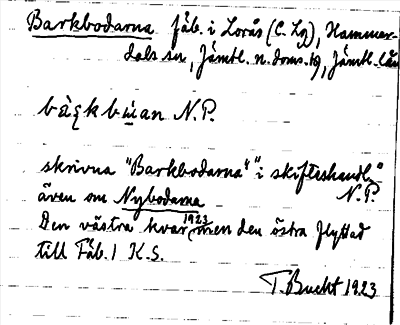 Barkbodarna fäb. i Lorås (C. Lg), Hammer-
dals sn, Jämtl. n. doms. tg, Jämtl. län
N.P.
skrivna "Barkbodarna" i skifteshandl."
N.P.
även om Nybodarna
1923
Den västra kvar men den östra flyttad
till Fäb. 1 K.S.
T. Bucht 1923